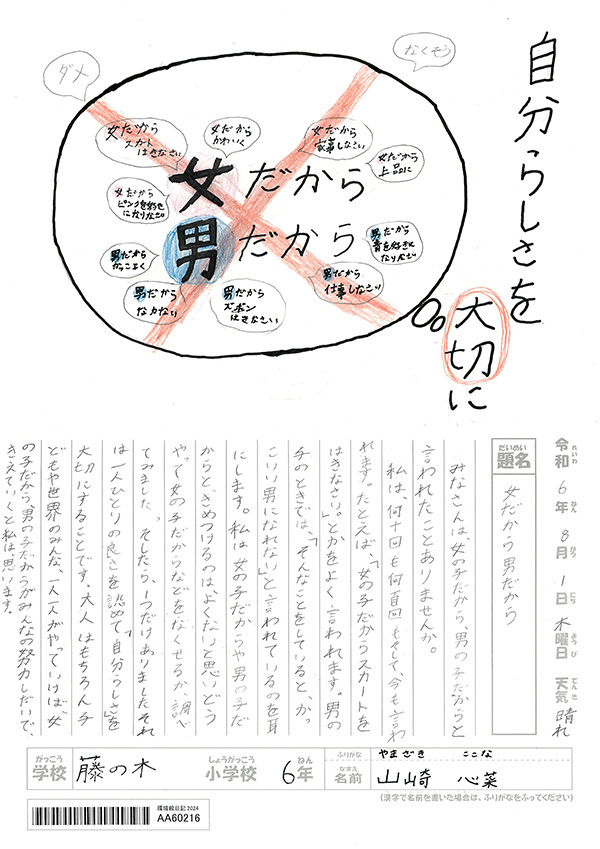 自分らしさを
大切に
なくそう
ダメ
女だから
スカート
はきなさい
女だから
かわいく
女だから
家事しなさい
女だから
上品に
女だから
ピンクを好き
になりなさい
女だから
男だから
男だから
かっこよく
男だから
青を好きに
なりなさい
男だから
なかない
男だから
ズボン
はきなさい
男だから
仕事しなさい
令和6年8月1日木曜日 天気 晴れ
れいわ ねん がつ にち ようび てんき
だいめい
題名
女だから男だから
みなさんは、女の子だから、男の子だからと
言われたことありませんか。
私は、何十回も何百回も、そして、今も言わ
れます。たとえば、「女の子だからスカートを
はきなさい。」とかをよく言われます。男の
子のときでは、「そんなことをしていると、かっ
こいい男になれない」と言われているのを耳
にします。私は女の子だからや男の子だ
からと、きめつけるのは、よくないと思いどう
やって女の子だからなどをなくせるか、調べ
てみました。そしたら、1つだけありましたそれ
は一人ひとりの良さを認めて「自分らしさ」を
大切にすることです。大人はもちろん子
どもや世界のみんな、一人一人がやっていけば、女
の子だから、男の子だからがみんなの努力しだいで、
きえていくと私は、思います。
がっこう
学校 藤の木
しょうがっこう
小学校
ねん
6年
ふりがな やまざき ここな
なまえ
名前 山崎 心菜
(漢字で名前を書いた場合は、ふりがなをふってください)
環境絵日記2024
AA60216